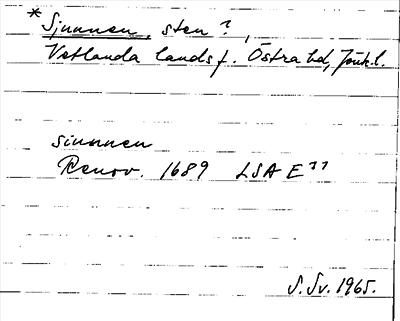 * Sjunnen, sten?,
Vetlanda landsf. Östra hd, Jönk. l.
siunnen
Renov. 1689 LSA E 77
S. Sv. 1965.